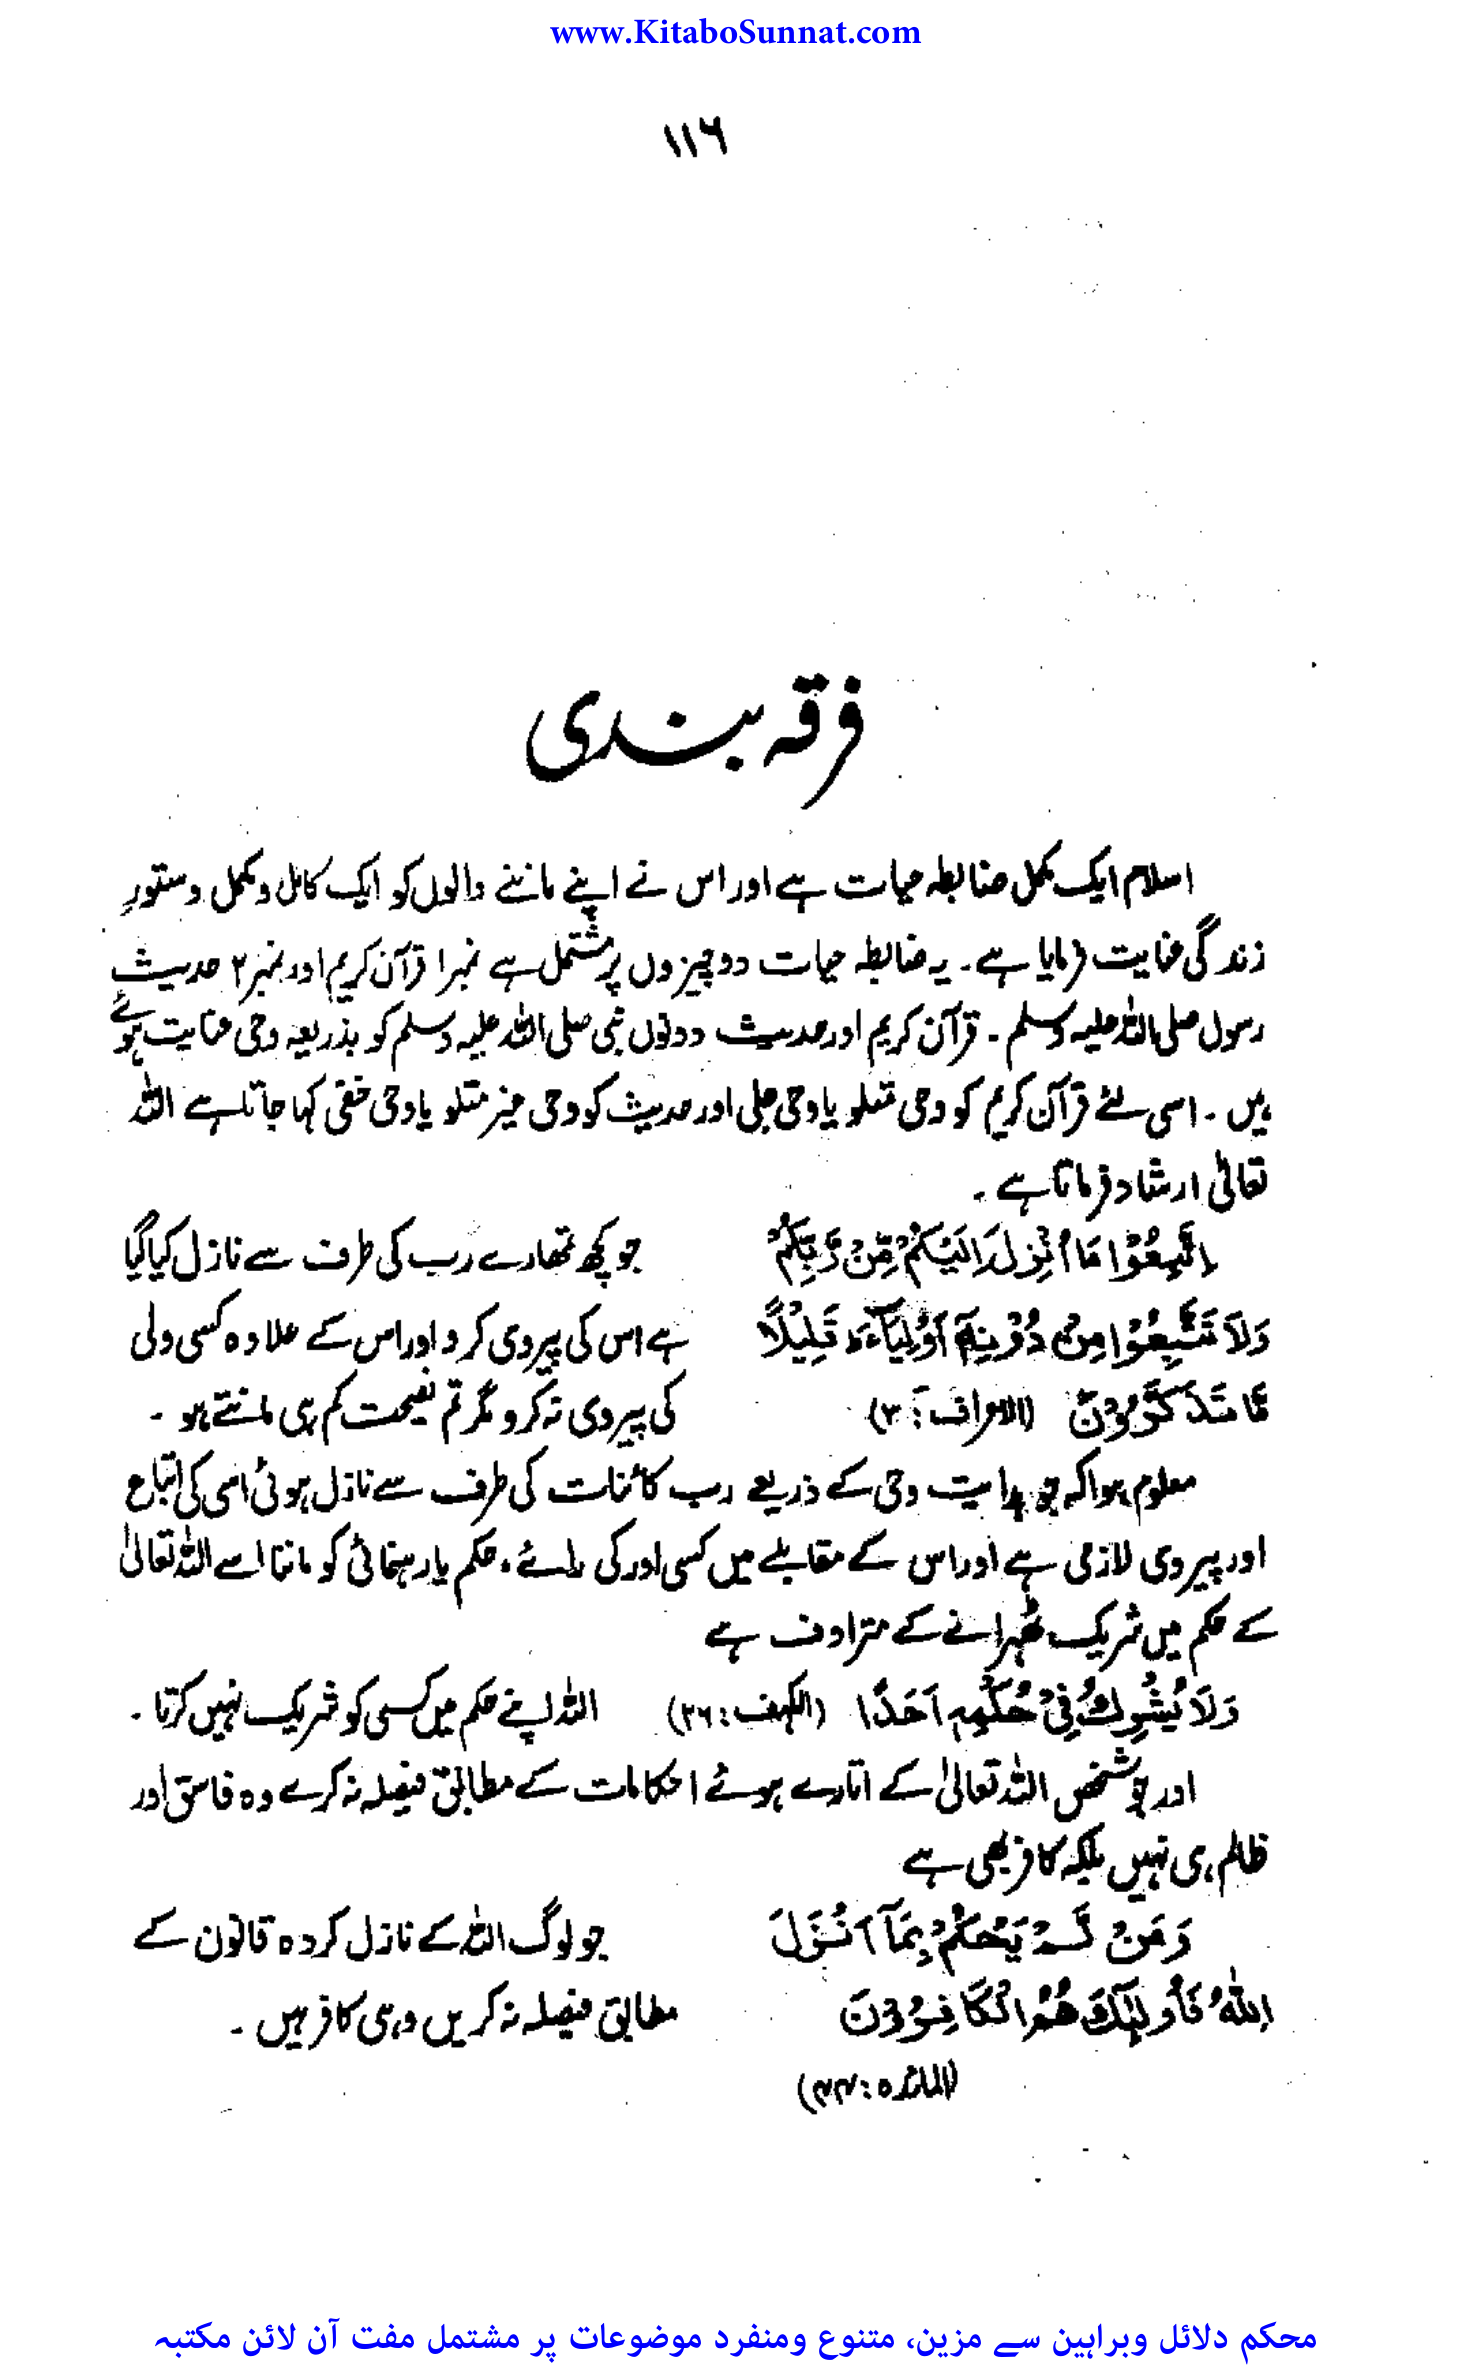 www.KitaboSunnat.com
۱۱۶
فرقہ بندی
اسلام ایک مکمل ضابطہ حیات ہے اور اس نے اپنے ماننے والوں کو ایک کامل و مکمل دستورِ
زندگی عنایت فرمایا ہے۔ یہ ضابطہ حیات دو چیزوں پر مشتمل ہے نمبر۱ قرآن کریم اور نمبر۲ حدیث
رسول صلی اللہ علیہ وسلم ۔ قرآن کریم اور حدیث دونوں نبی صلی اللہ علیہ وسلم کو بذریعہ وحی عنایت ہوئے
ہیں ۔ اسی لئے قرآن کریم کو وحی متلو یا وحی جلی اور حدیث کو وحی غیر متلو یا وحی خفی کہا جاتا ہے اللہ
تعالیٰ ارشاد فرماتا ہے ۔
اِتَّبِعُوْا مَا اُنْزِلَ اِلَیْکُمْ مِّنْ رَّبِّکُمْ جو کچھ تمھارے رب کی طرف سے نازل کیا گیا
وَلَا تَتَّبِعُوْا مِنْ دُوْنِهٖٓ اَوْلِیَآءَ قَلِیْلًا ہے اس کی پیروی کرو اور اس کے علاوہ کسی ولی
مَّا تَذَکَّرُوْنَ (الاعراف : ۳) کی پیروی نہ کرو مگر تم نصیحت کم ہی مانتے ہو ۔
معلوم ہوا کہ جو ہدایت وحی کے ذریعے رب کائنات کی طرف سے نازل ہوئی اسی کی اتباع
اور پیروی لازمی ہے اور اس کے مقابلے میں کسی اور کی رائے، حکم یا رہنمائی کو ماننا اسے اللہ تعالیٰ
کے حکم میں شریک ٹھہرانے کے مترادف ہے
وَلَا یُشْرِكُ فِیْ حُکْمِهٖ اَحَدًا (الکہف : ۲۶) اللہ اپنے حکم میں کسی کو شریک نہیں کرتا ۔
اور جو شخص اللہ تعالیٰ کے اتارے ہوئے احکامات کے مطابق فیصلہ نہ کرے وہ فاسق اور
ظالم ہی نہیں بلکہ کافر بھی ہے
وَمَنْ لَّمْ یَحْکُمْ بِمَآ اَنْزَلَ جو لوگ اللہ کے نازل کردہ قانون کے
اللّٰهُ فَاُولٰٓئِكَ هُمُ الْکَافِرُوْنَ مطابق فیصلہ نہ کریں وہی کافر ہیں ۔
(المائدہ : ۴۴)
محکم دلائل وبراہین سے مزین، متنوع ومنفرد موضوعات پر مشتمل مفت آن لائن مکتبہ